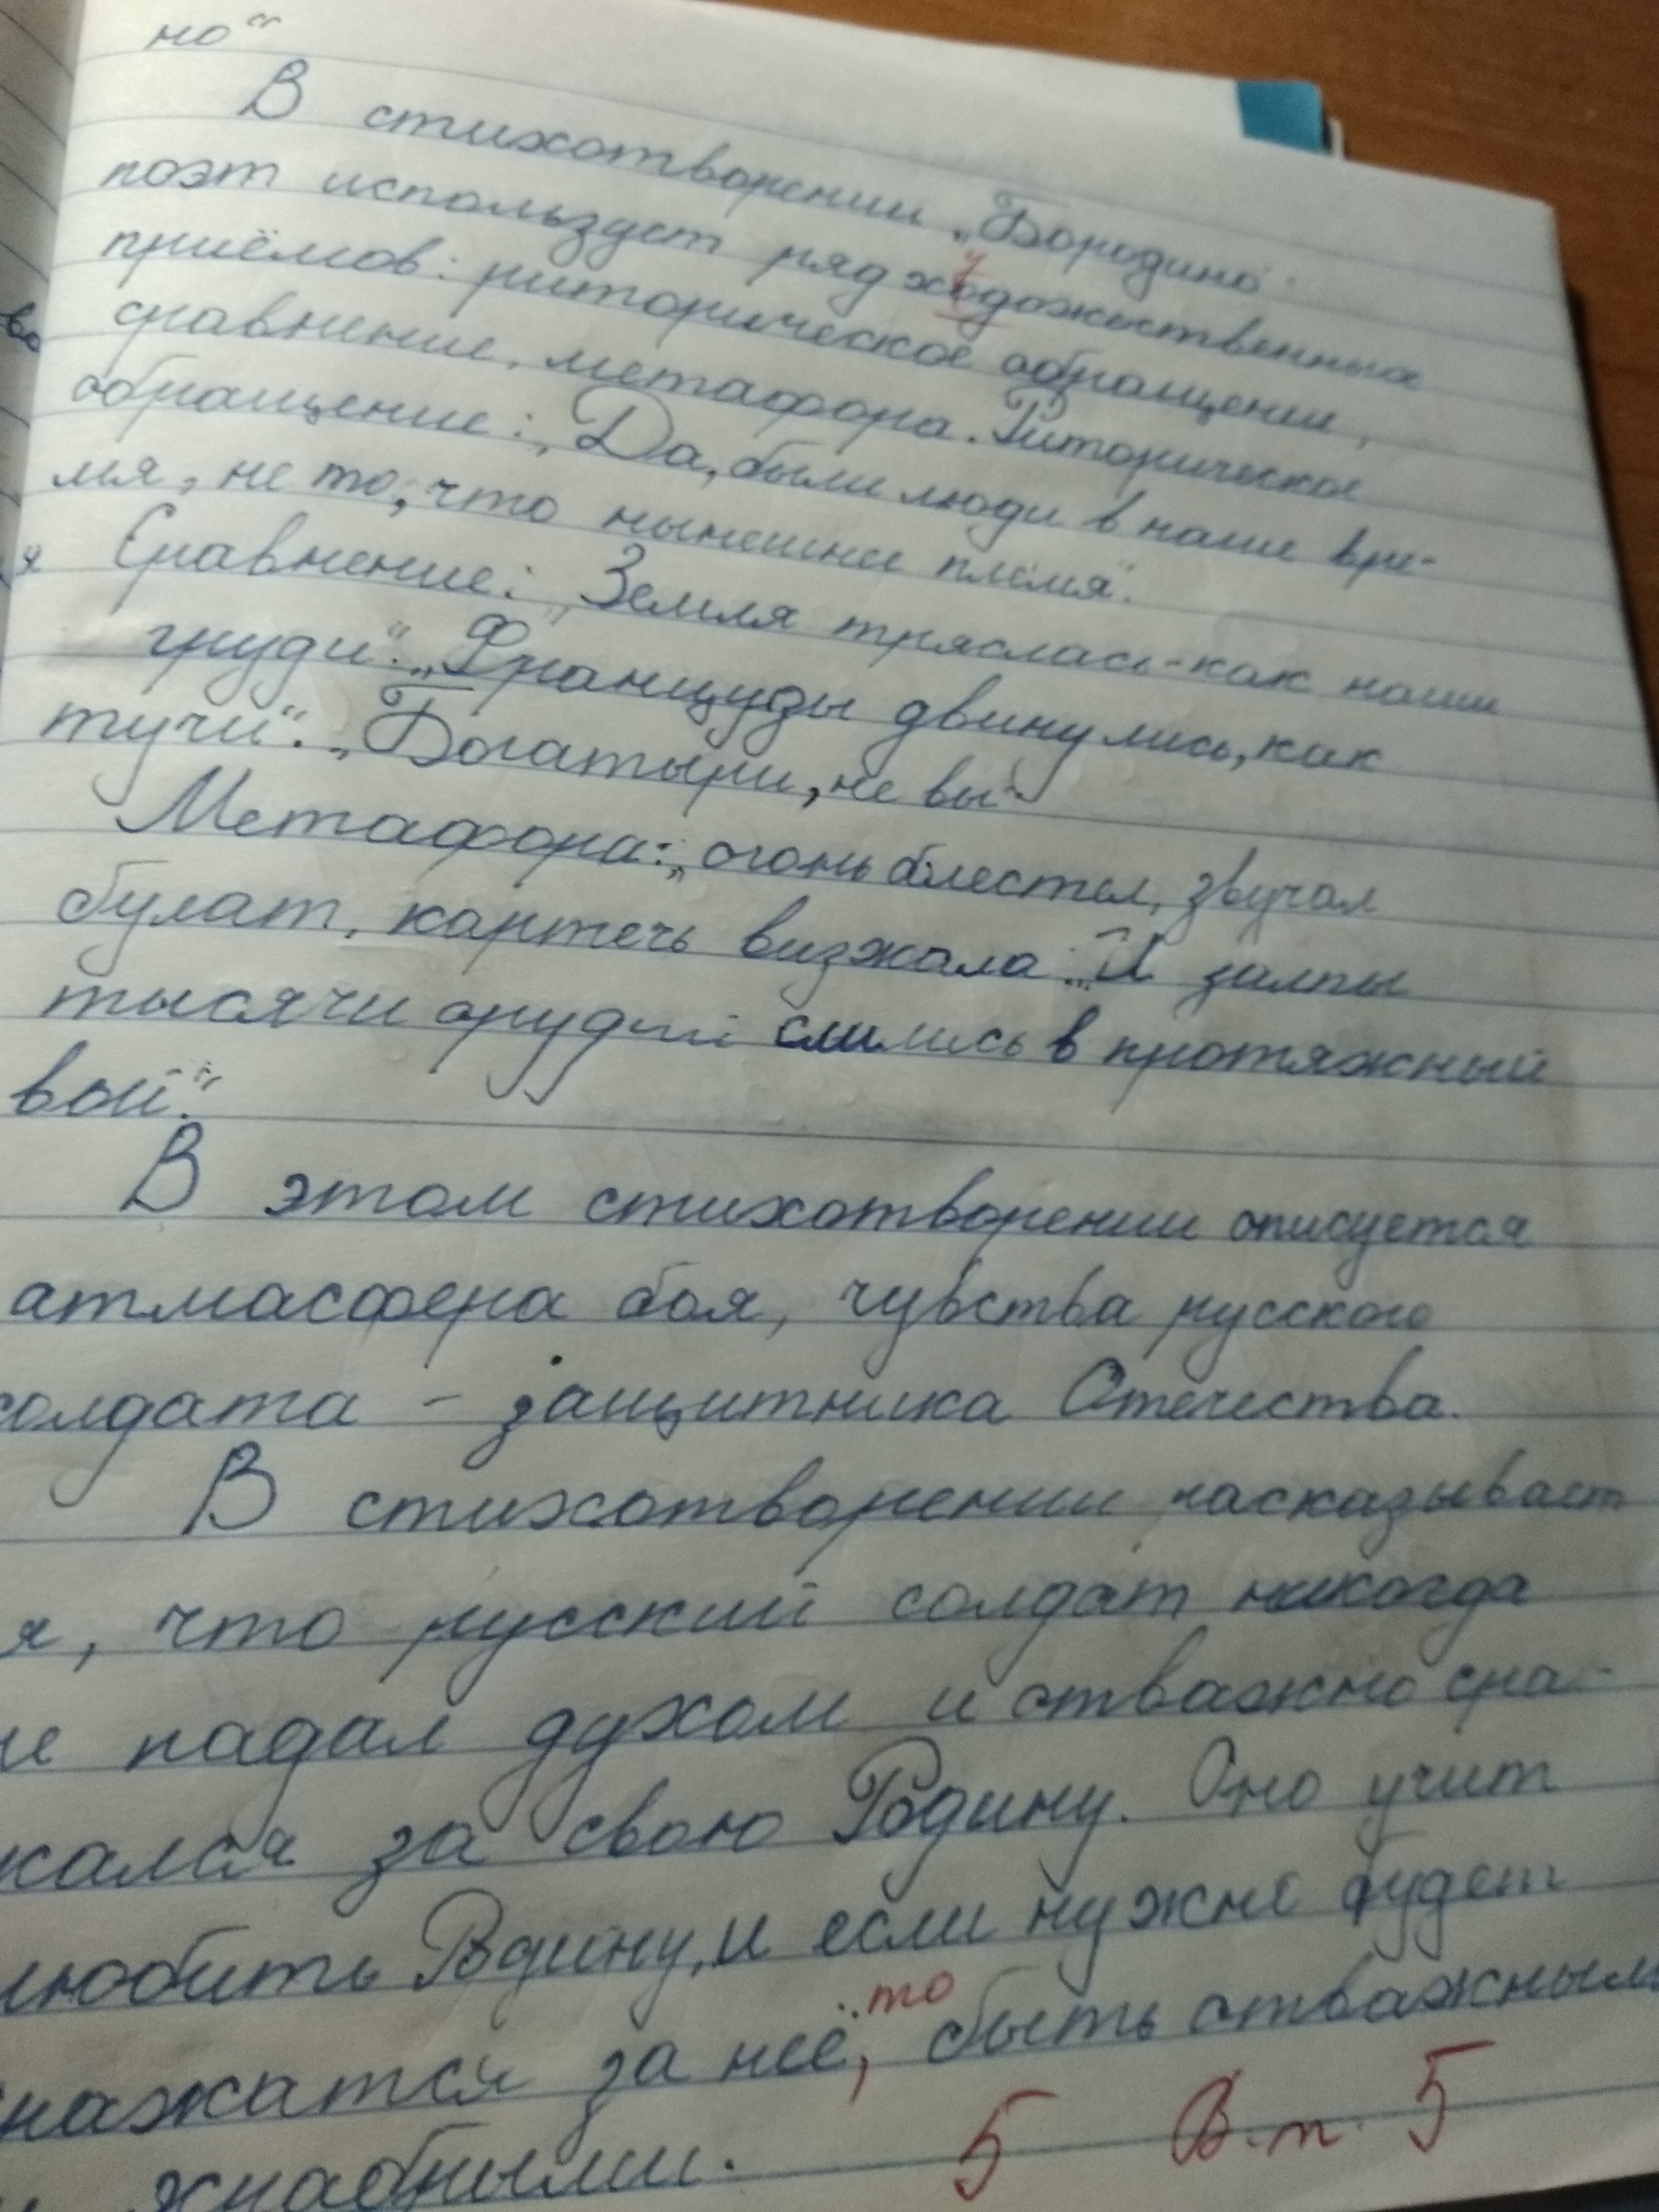 но“
В стихотворении „Бородино“
поэт использует ряд художественных
приёмов: риторическое обращении,
сравнение, метафора. Риторическое
обращение: „Да, были люди в наше вре-
мя, не то, что нынешнее племя“.
Сравнение: „Земля тряслась - как наши
груди“. „Французы двинулись, как
тучи“. „Богатыри, не вы“
Метафора: „огонь блестел, звучал
булат, картечь визжала“. „И залпы
тысячи орудий слились в протяжный
вой“.
В этом стихотворении описуется
атмасфера боя, чувства русского
солдата - защитника Отечества.
В стихотворении рассказывает
я, что русский солдат никогда
не падал духом и отважно сра-
жался за свою Родину. Оно учит
любить Родину, и если нужно будет
сражатся за неё, то быть отважным
храбрыми.
5 В.т. 5